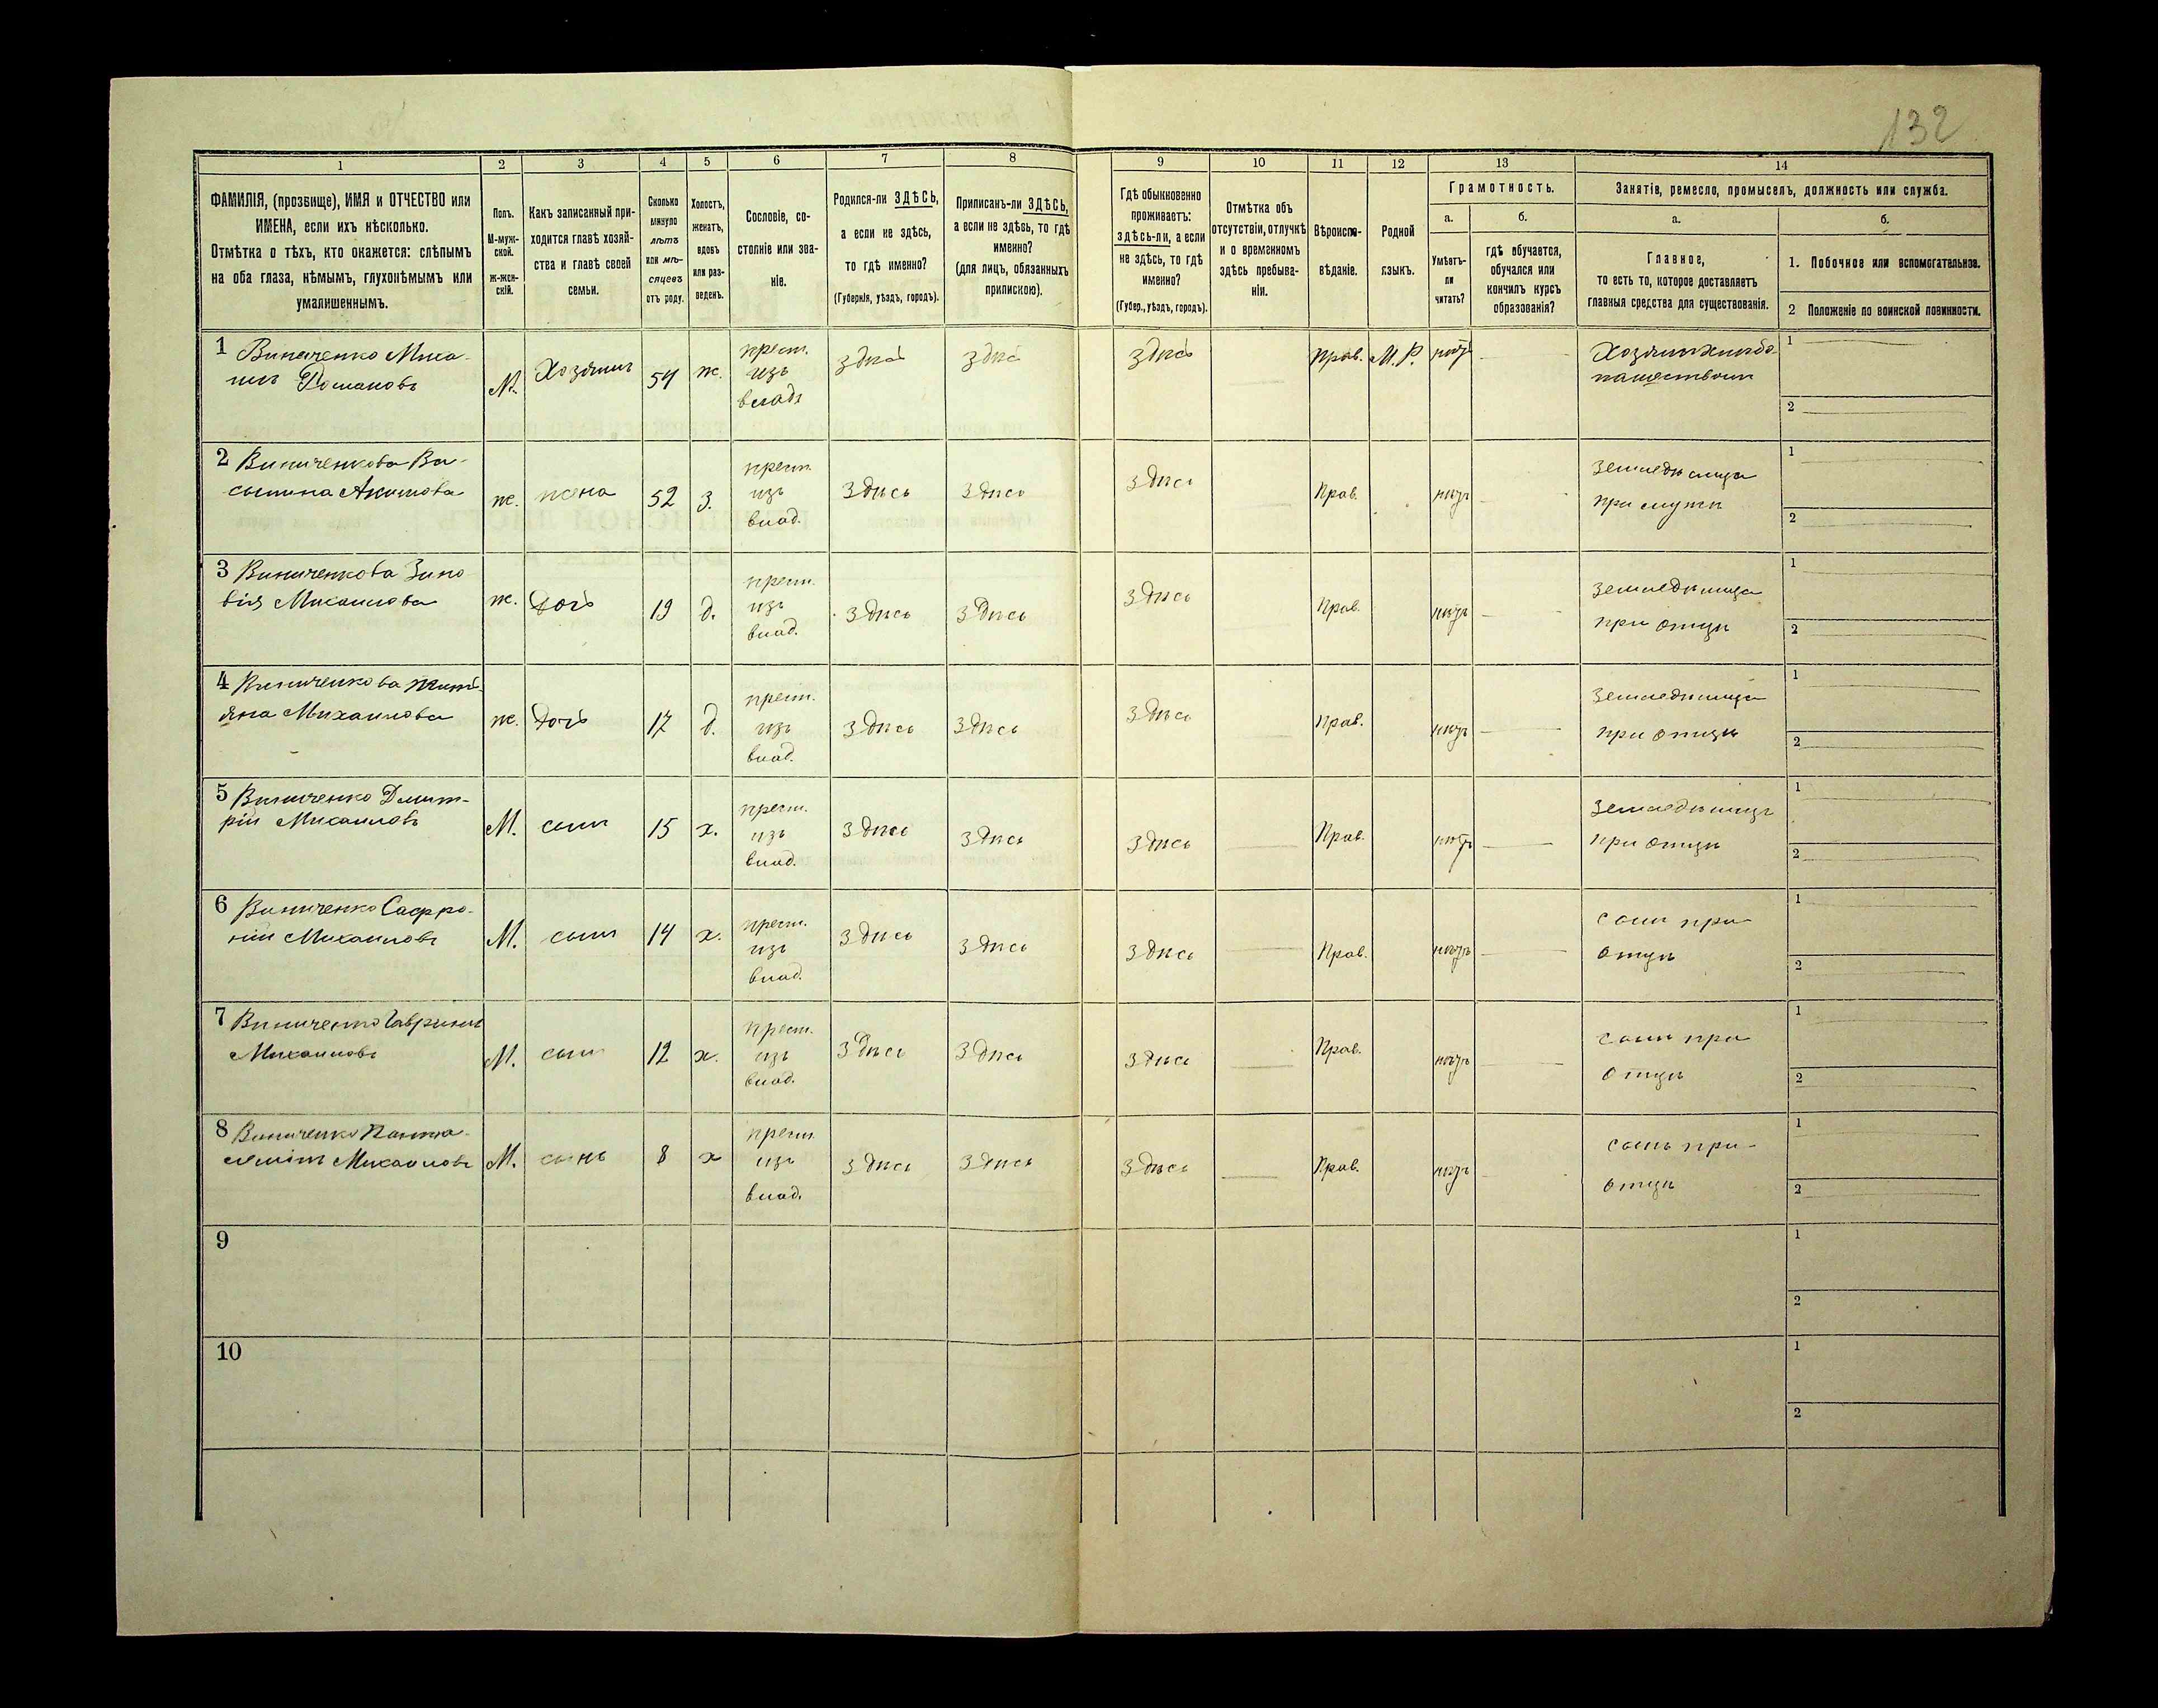 132
1 2 3 4 5 6 7 8 9 10 11 12 13 14
ФАМИЛІЯ, (прозвище), ИМЯ и ОТЧЕСТВО или
ИМЕНА, если ихъ нѣсколько.
Отмѣтка о тѣхъ, кто окажется: слѣпымъ
на оба глаза, нѣмымъ, глухонѣмымъ или
умалишеннымъ.
Полъ.
М-муж-
ской.
ж-жен-
скій.
Какъ записанный при-
ходится главѣ хозяй-
ства и главѣ своей
семьи.
Сколько
минуло
лѣтъ
или мѣ-
сяцевъ
отъ роду.
Холостъ,
женатъ,
вдовъ
или раз-
веденъ.
Сословіе, со-
стояніе или зва-
ніе.
Родился-ли ЗДѢСЬ,
а если не здѣсь,
то гдѣ именно?
(Губернія, уѣздъ, городъ).
Приписанъ-ли ЗДѢСЬ,
а если не здѣсь, то гдѣ
именно?
(для лицъ, обязанныхъ
припискою).
Гдѣ обыкновенно
проживаетъ:
здѣсь-ли, а если
не здѣсь, то гдѣ
именно?
(Губер., уѣздъ, городъ).
Отмѣтка объ
отсутствіи, отлучкѣ
и о временномъ
здѣсь пребыва-
ніи.
Вѣроиспо-
вѣданіе.
Родной
языкъ.
Грамотность.
а. б.
Умѣетъ-
ли
читать?
гдѣ обучается,
обучался или
кончилъ курсъ
образованія?
Занятіе, ремесло, промыселъ, должность или служба.
а. б.
Главное,
то есть то, которое доставляетъ
главныя средства для существованія.
1. Побочное или вспомогательное.
2 Положеніе по воинской повинности.
1 Виниченко Миха-
илъ Романовъ
М. Хозяинъ 54 ж. крест. изъ влад. здѣсь здѣсь здѣсь Прав. М.Р. нѣтъ
1
2
2 Виниченкова Ва-
сылина Акимова
ж. жена 52 З. крест. изъ влад. здѣсь здѣсь здѣсь Прав. нѣтъ земледѣлица
при мужѣ
1
2
3 Виниченкова Зино
вія Михаилова
ж. дочь 19 д. крест. изъ влад. здѣсь здѣсь здѣсь Прав. нѣтъ земледѣлица
при отцѣ
1
2
4 Виниченкова
Михаилова
ж. дочь 17 д. крест. изъ влад. здѣсь здѣсь здѣсь Прав. нѣтъ земледѣлица
при отцѣ
1
2
5 Виниченко Дмит-
рій Михаиловъ
М. сынъ 15 х. крест. изъ влад. здѣсь здѣсь здѣсь Прав. нѣтъ земледѣлецъ
при отцѣ
1
2
6 Виниченко Сафро-
ній Михаиловъ
М. сынъ 14 х. крест. изъ влад. здѣсь здѣсь здѣсь Прав. нѣтъ сынъ при
отцѣ
1
2
7 Виниченко Гаврiилъ
Михаиловъ
М. сынъ 12 х. крест. изъ влад. здѣсь здѣсь здѣсь Прав. нѣтъ сынъ при
отцѣ
1
2
8 Виниченко Пантю-
Михаиловъ
М. сынъ 8 х крест. изъ влад. здѣсь здѣсь здѣсь Прав. нѣтъ сынъ при
отцѣ
1
2
9
1
2
10
1
2